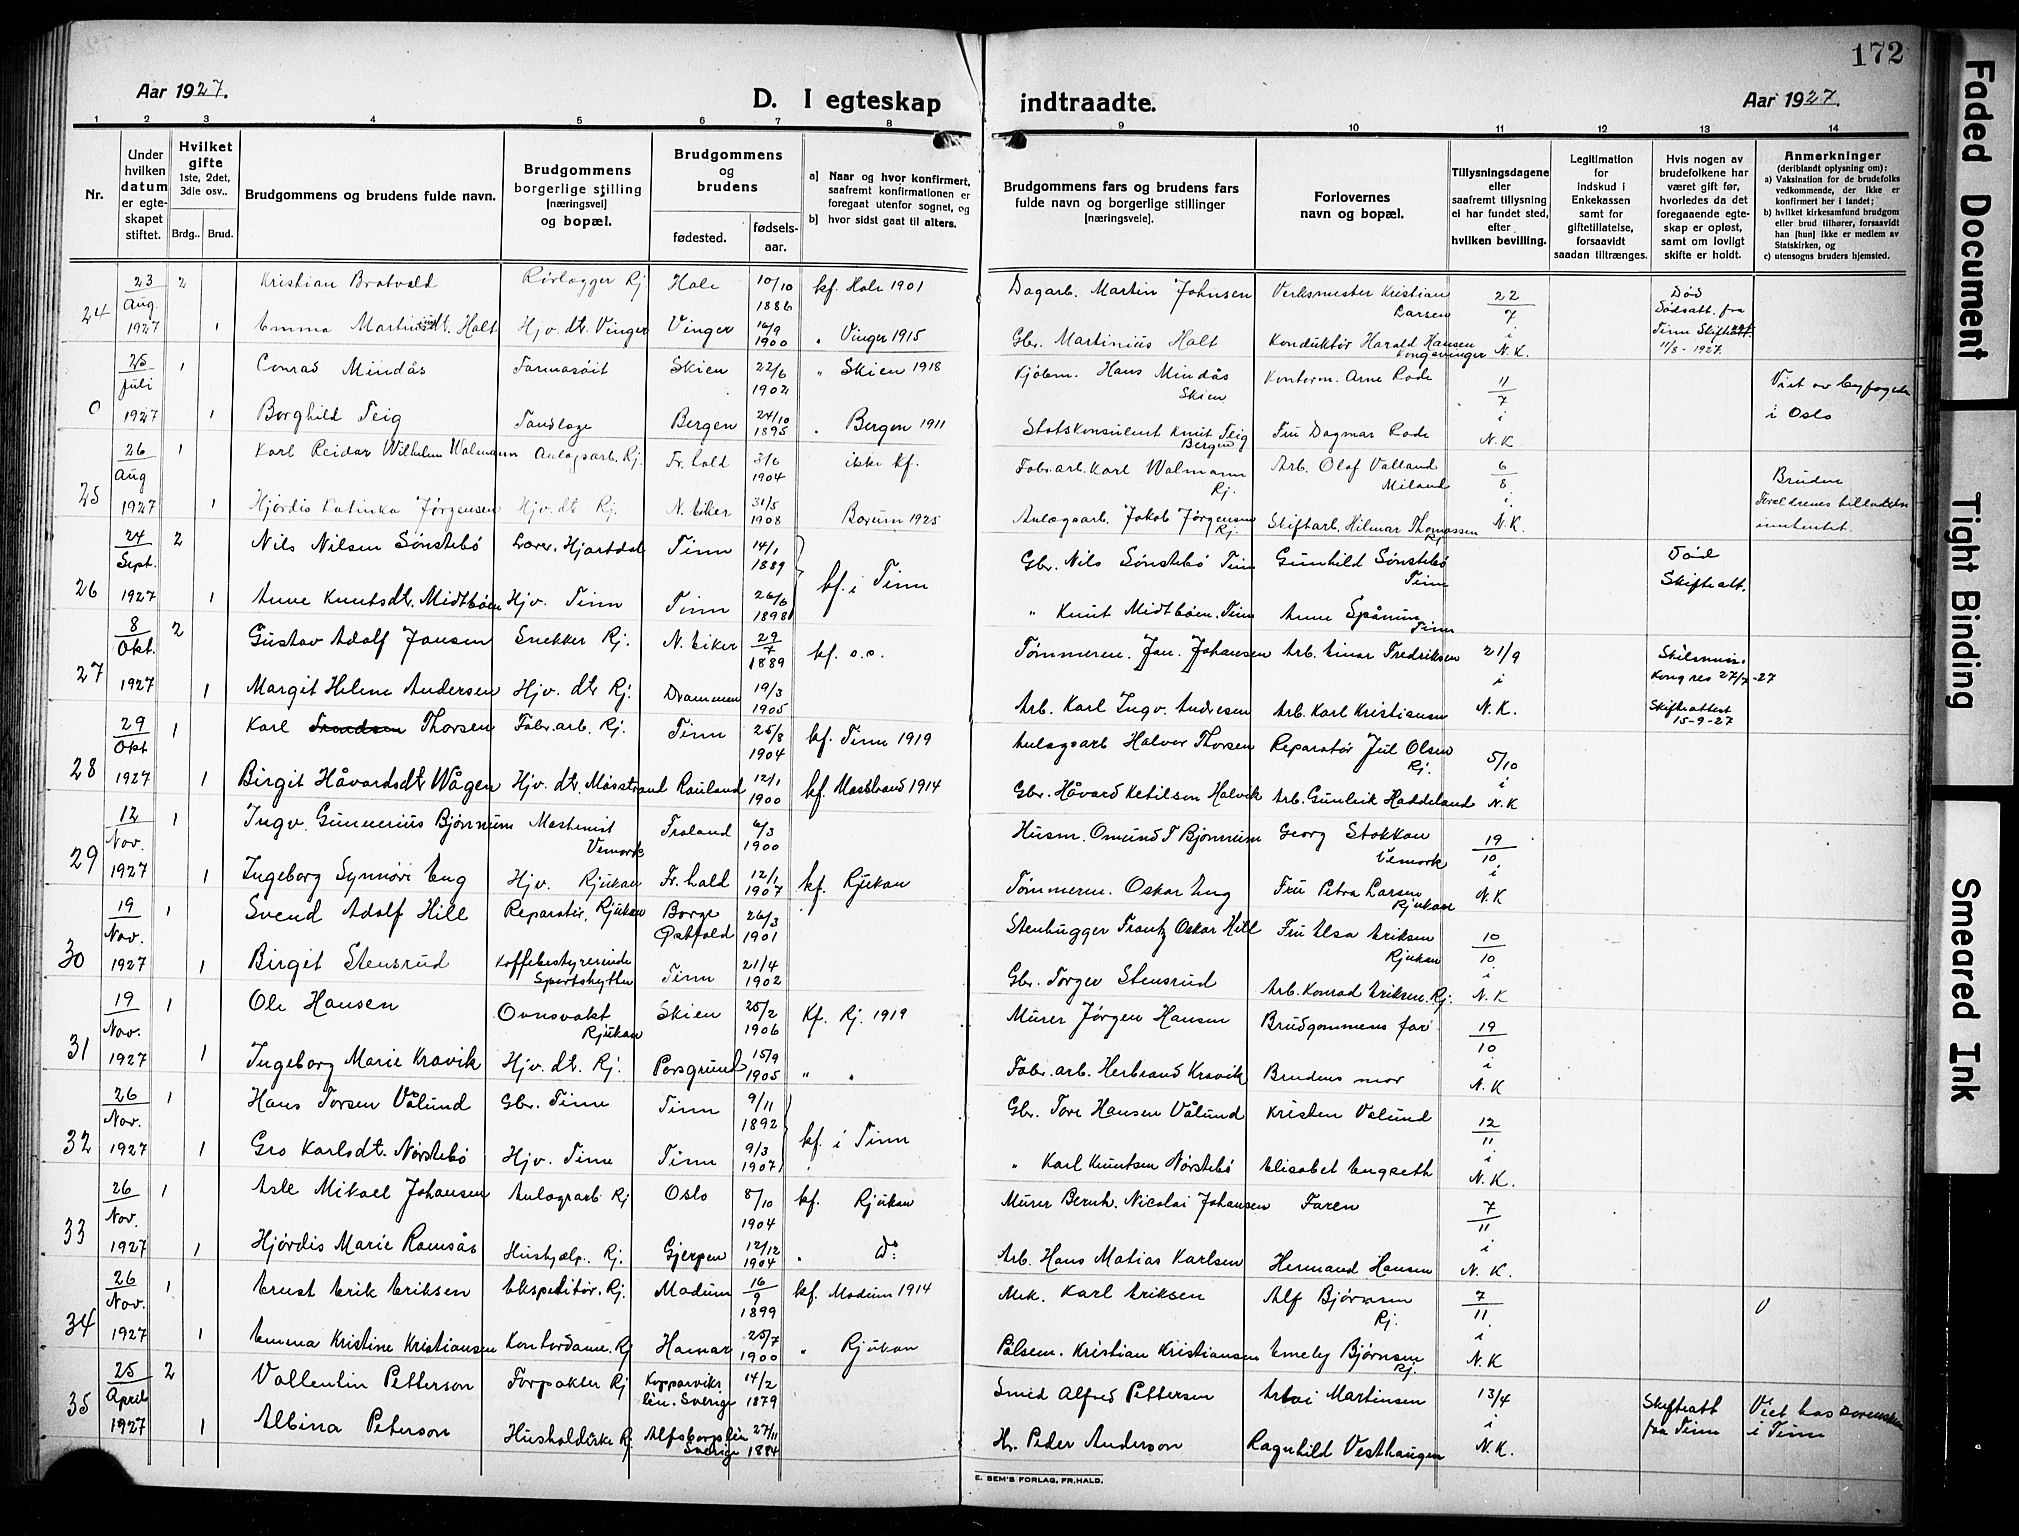 172
Aar 1927.
D. I egteskap indtraadte.
Aar 1927.
1 2 3 4 5 6 7 8 9 10 11 12 13 14
Nr.
Under hvilken datum er egteskapet stiftet.
Hvilket gifte 1ste, 2det, 3die osv..
Brdg.. Brud.
Brudgommens og brudens fulde navn.
Brudgommens borgerlige stilling [næringsvei] og bopæl.
Brudgommens og brudens
fødested. fødsels-aar.
a] Naar og hvor konfirmert, saafremt konfirmationen er foregaat utenfor sognet, og
b] hvor sidst gaat til alters.
Brudgommens fars og brudens fars fulde navn og borgerlige stillinger [næringsveie].
Forlovernes navn og bopæl.
Tillysningsdagene eller saafremt tillysning ei har fundet sted, efter hvilken bevilling.
Legitimation for indskud i Enkekassen samt for giftetillatelse, forsaavidt saadan tiltrænges.
Hvis nogen av brudefolkene har været gift før, hvorledes da det foregaaende egteskap er opløst, samt om lovligt skifte er holdt.
Anmerkninger (deriblandt oplysning om):
a) Vaksination for de brudefolks vedkommende, der ikke er konfirmert her i landet;
b) hvilket kirkesamfund brudgom eller brud tilhører, forsaavidt han [hun] ikke er medlem av Statskirken, og
c) utensogns bruders hjemsted.
24 23 Aug. 1927 2 Kristian Bratvold Rørlægger Rj Hole 10/10 1886 kf. Hole 1901 Dagarb. Martin Johnsen Verksmester Kristian Larsen 22/7 i N.K. Død Dødsatt. fra Tinn Skifteatt. 11/8-1927.
1 Emma Martinusdt. Holt Hjv. dt. Vinger Vinger 16/9 1900 " Vinger 1915 Gbr. Martinius Holt Konduktør Harald Hansen Kongsvinger
0 25 Juli 1927 1 Conrad Mindås Farmasøit Skien 22/6 1902 " Skien 1918 Kjøbm. Hans Mindås Skien Kontorm. Arne Rode 11/7 i N.K Viet av byfogden i Oslo
1 Borghild Teig Tandlæge Bergen 24/10 1895 " Bergen 1911 Statskonsulent Knut Teig Bergen Fru Dagmar Rode
25 26 Aug 1927 1 Karl Reidar Wilhelm Walmann Anlægsarb. Rj. Fr.hald 3/6 1904 ikke kf. Fabr.arb. Karl Walmann Rj. Arb. Olaf Valland Miland 6/8 i N.K. Bruden Forældrenes billadelse innhentet.
1 Hjørdis Katinka Jørgensen Hjv. dt Rj. N. Eiker 31/5 1908 Borum 1925 Anlægsarb. Jakob Jørgensen Rj. Skiftarb. Hilmar Thomassen Rj
26 24 Sept. 1927 2 Nils Nilsen Sønstebø Lærer. Hjartdal Tinn 14/1 1889 kf. i Tinn Gbr. Nils Sønstebø Tinn Gunhild Sønstebø Tinn Død Skifteatt.
1 Anne Knutsdt. Midtbøen Hjv. Tinn Tinn 26/6 1898 " Knut Midtbøen. Tinn Anne Spånum Tinn
27 8 Okt. 1927 2 Gustav Adolf Jansen Snekker Rj. N. Eiker 29/7 1889 kf. o.s. Tømmerm. Jan. Johansen Arb. Einar Fredriksen 21/9 i N.K. Skilsmiss. Kongres 27/7-27 Skifteattest 15-9-27
1 Margit Helene Andersen Hjv. dt Rj. Drammen 19/3 1905 Arb. Karl Ingv. Andresen Arb. Karl Kristiansen
28 29 Okt 1927 1 Karl Thorsen Fabr.arb. Rj. Tinn 25/8 1904 kf. Tinn 1919 Anlægsarb Halvor Thorsen Reparatør Jul Olsen Rj. 5/10 i N.K
1 Birgit Håvardsdt Wågen Hjv. dt. Møsstrand Rauland 12/1 1900 kf. Møsstrand 1914 Gbr. Håvard Ketilson Halvik Arb. Gunleik Haddeland
29 12 Nov. 1927 1 Ingv. Gunnerius Bjønnum Maskinist Vemork Froland 6/3 1900 Husm. Omund T Bjønnum Georg Stokkan Vemork 19/10 i N.K
1 Ingeborg Synnøve Eng Hjv. Rjukan Fr.hald 12/1 1907 kf. Rjukan Tømmerm. Oskar Eng Fru Petra Larsen Rjukan
30 19 Nov. 1927 1 Svend Adolf Hill Reparatør. Rjukan Borge Østfold 26/3 1901 Stenhugger Frantz Oskar Hill Fru Elsa Eriksen Rjukan 10/10 i N.K
1 Birgit Stensrud Kaffebestyrerinde Sportshytten Tinn 21/4 1902 Gbr. Torger Stensrud Arb. Konrad Eriksen. Rj.
31 19 Nov. 1927 1 Ole Hansen Ovnsvakt Rjukan Skien 25/2 1906 Kf. Rj. 1919 Murer Jørgen Hansen Brudgommens far 19/10 i N.K
1 Ingeborg Marie Kravik Hjv. dt. Rj. Porsgrund 15/9 1905 " " Fabr. arb. Herbrand Kravik Brudens mor
32 26 Nov. 1927 1 Hans Torsen Vålund Gbr. Tinn Tinn 9/11 1892 kf. i Tinn Gbr. Tore Hansen Vålund Kristen Vålund 12/11 i N.K.
1 Gro Karlsdt. Nørstebø Hjv. Tinn Tinn 9/3 1907 " Karl Knutsen Nørstebø Elisabet Engseth
33 26 Nov. 1927 1 Asle Mikael Johansen Anlægsarb Rj Oslo 8/10 1904 kf. Rjukan Murer Bernh. Nicolai Johansen Faren 7/11 i N.K.
1 Hjørdis Marie Ramsås Hushjælp. Rj. Gjerpen 12/12 1904 " do Arb. Hans Matias Karlsen Hermand Hansen
34 26 Nov. 1927 1 Ernst Erik Eriksen Ekspeditør. Rj. Modum 16/9 1899 kf. Modum 1914 Mek. Karl Eriksen Alf Bjørnsen Rj. 7/11. i N.K
1 Emma Kristine Kristiansen Kontordame. Rj Hamar 25/7 1900 " Rjukan Pølsem. Kristian Kristiansen Emely Bjørnsen Rj.
35 25 April 1927 2 Vallentin Petterson Forpakter Rj Kopparvikslän. Sverige 14/2 1879 Smed Alfred Pettersen Martinsen 13/4 i N.K. Skifteatt fra Tinn Viet hos sorenskr. i Tinn
1 Albina Peterson Husholderske Rj Alfsborgslän Sverige 27/11 1884 Hr. Peder Anderson Ragnhild Vesthaugen
E. SEM'S FORLAG, FR.HALD.
Faded Document
Tight Binding
Smeared Ink